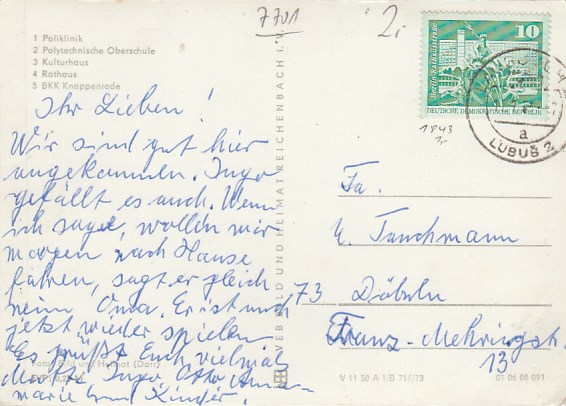 7701
2,-
1 Poliklinik
2 Polytechnische Oberschule
3 Kulturhaus
4 Rathaus
5 BKK Knappenrode
Ihr Lieben!
Wir sind gut hier
angekommen. Ingo
gefällt es auch. Wenn
ich sage, wollen wir
morgen nach Hause
fahren, sagt er gleich
nein Oma. Er ist auch
jetzt wieder spielen
Es grüßt Euch vielmals
Ingo Otto Anne-
marie und Kinder.
Foto: Bild und Heimat (Dorr)
VEB BILD UND HEIMAT REICHENBACH I. V.
10
Berlin, Rathausstraße
DEUTSCHE DEMOKRATISCHE REPUBLIK
a
LUBUŠ 2
1843
Fa.
E. Tauchmann
73 Döbeln
Franz-Mehringstr.
13
V 11 50 A 1/B 716/73
01 06 08 091